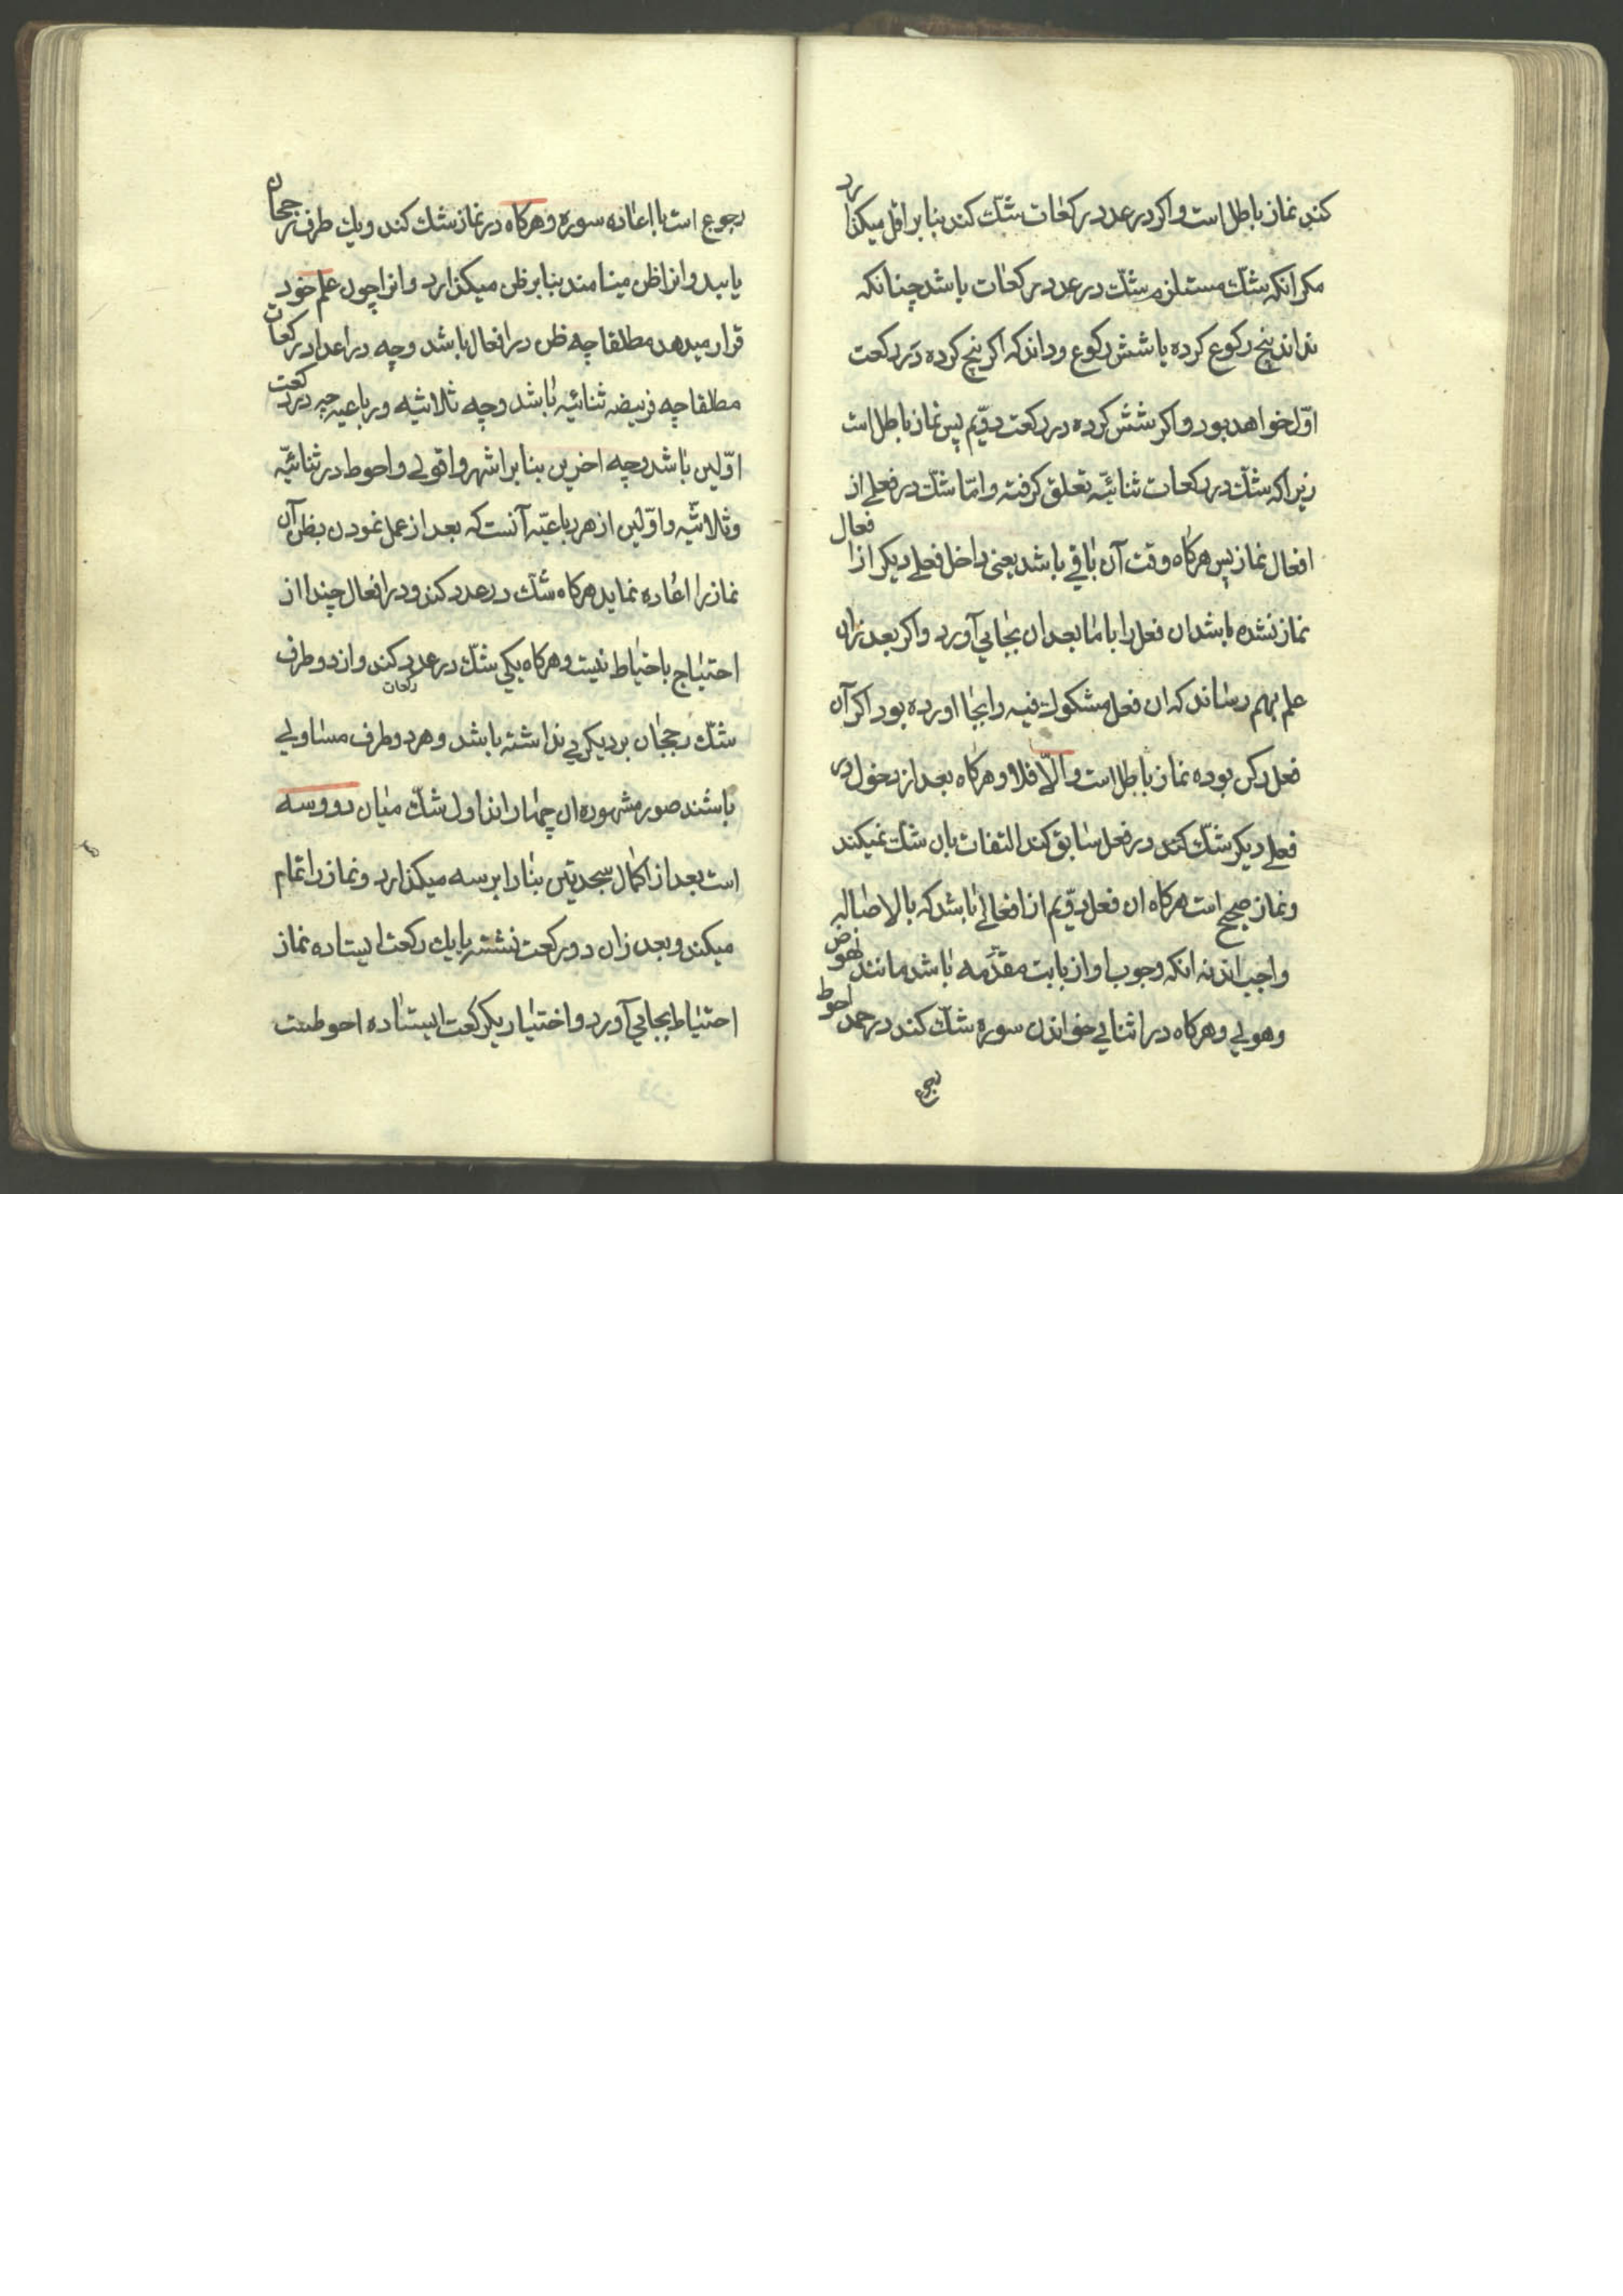 کند نماز باطل است و اکر در عدد رکعات شک کند بنا بر اقل میکذارد
مکر انکه شک مستلزم شک در عدد رکعات باشد چنانکه
نداند پنج رکوع کرده یا شش رکوع و داند که اکر پنج کرده در رکعت
اوّل خواهد بود و اکر شش کرده در رکعت دوّیم پس نماز باطل است
زیرا که شک در رکعات ثنائیّه تعلق کرفته و امّا شک در فعلے از
افعال نماز پس هرکاه وقت آن باقے باشد یعنی داخل فعلے دیکر از افعال
نماز نشده باشد ان فعل را با مابعد ان بجایی آورد و اکر بعد زان
علم بهم رساند که ان فعل مشکوك فیه را بجا اورده بود اکر آن
فعل رکن بوده نماز باطل است و الّا فلا و هرکاه بعد از دخول در
فعلے دیکر شک کند در فعل سابق کند التفات بان شک نمیکند
و نماز صحیح است هرکاه ان فعل دوّیم از افعالے باشد که بالاصاله
واجب اند نه انکه وجوب او از بابت مقدّمه باشد مانند نهوض
و هویے و هرکاه در اثنایے خواندن سوره شک کند در حمد احوط
رجوع
رجوع است با اعاده سوره و هرکاه در نماز شك کند و یك طرف رجحان
یابد و انرا ظن مینامند بنا بر ظن میکذارد و انرا چون علم خود
قرار میدهد مطلقا چه ظن در افعال باشد و چه در اعداد رکعات
مطلقا چه فریضه ثنائیّه باشد و چه ثلاثیه و رباعیه چه در رکعت
اوّلین باشد و چه اخرین بنا بر اشهر و اقویے و احوط در ثنائیّه
و ثلاثیّه و اوّلین از هر رباعیّه آنست که بعد از عمل نمودن بظن آن
نماز را اعاده نماید هرکاه شك در عدد کند و در افعال چندا از
احتیاج باحتیاط نیست و هرکاه یکی شك در عدد رکعات کند و از دو طرف
شك رجحان بر دیکریے نداشته باشد و هر دو طرف مساویے
باشند صور مشهوره ان چهاراند اول شك میان دو و سه
است بعد از اکمال سجدیتن بنا را بر سه میکذارد و نماز را تمام
میکند و بعد زان دو رکعت نشسته یا یك رکعت ایستاده نماز
احتیاط بجایی آورد و اختیار یکرکعت ایستاده احوطست